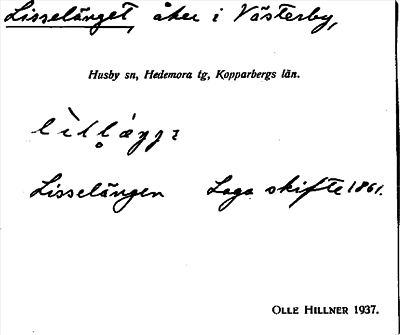 Lisselänget, åker i Västerby,
Husby sn, Hedemora tg, Kopparbergs län.
Lisselängen Laga skifte 1861.
OLLE HILLNER 1937.